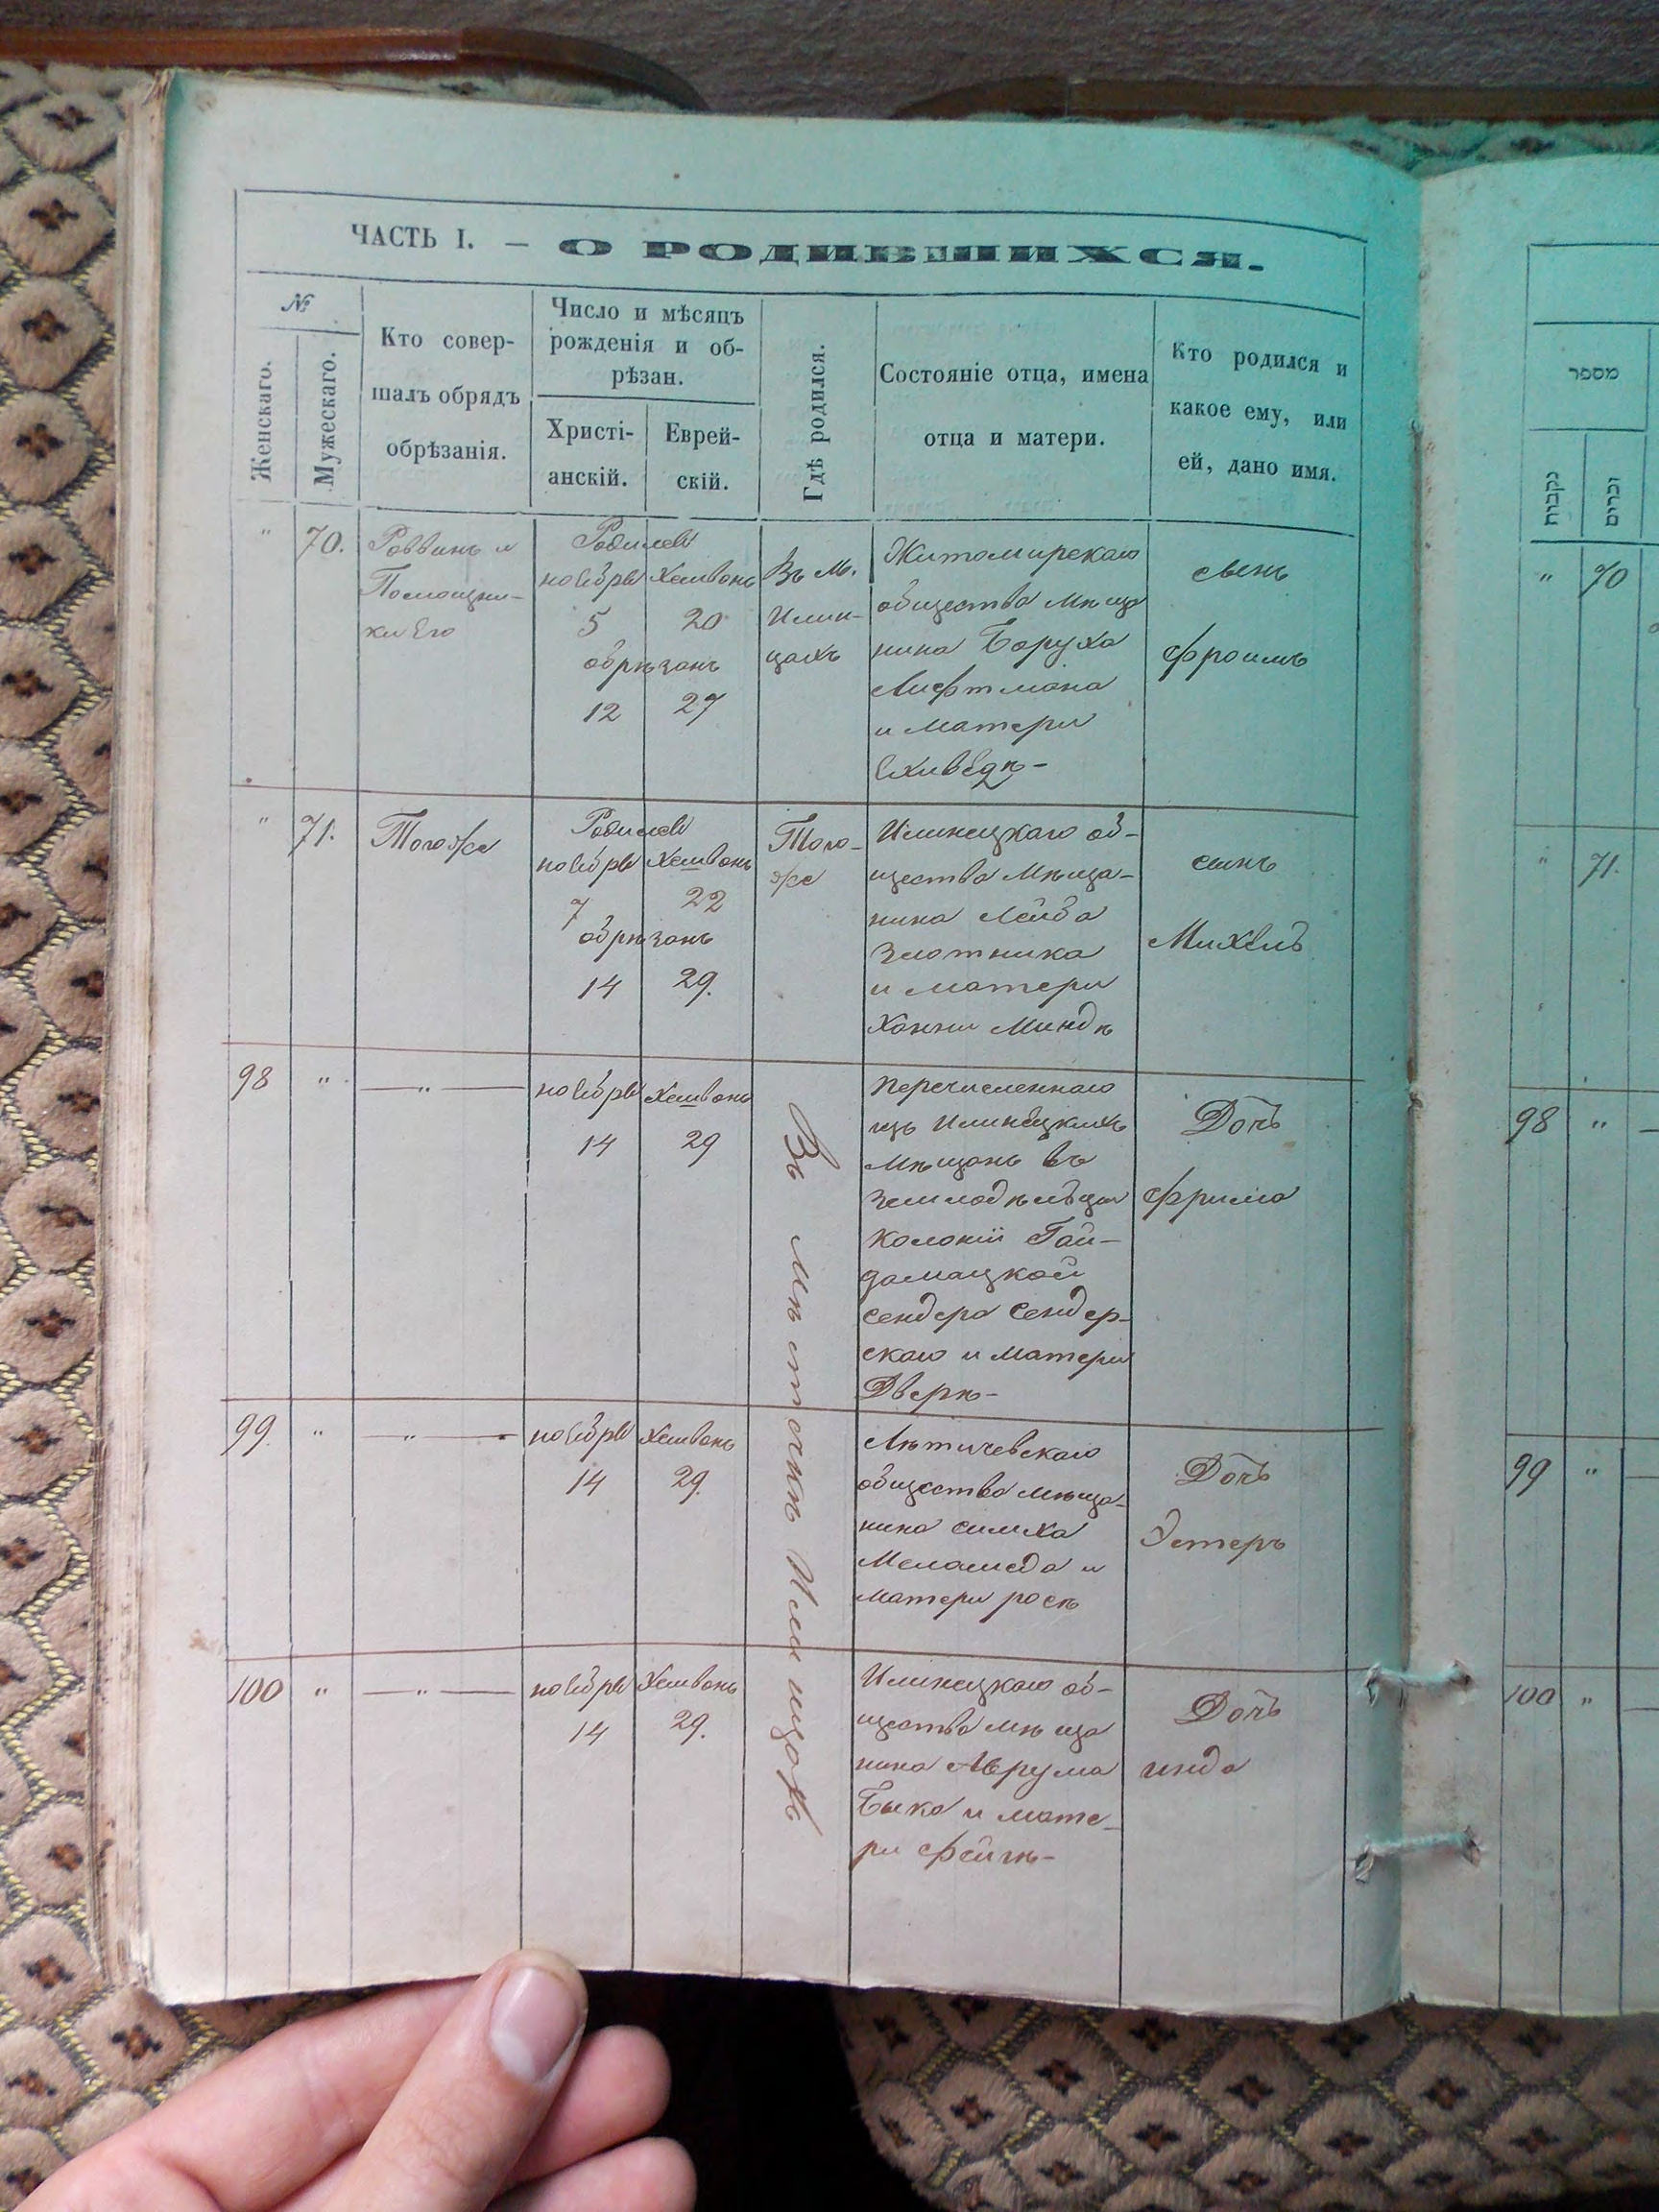 ЧАСТЬ I. — О РОДИВШИХСЯ.
№
Женскаго.
Мужескаго.
Кто совер-
шалъ обрядъ
обрѣзанія.
Число и мѣсяцъ
рожденія и об-
рѣзан.
Христі-
анскій.
Еврей-
скій.
Гдѣ родился.
Состояніе отца, имена
отца и матери.
Кто родился и
какое ему, или
ей, дано имя.
" 70.
Раввинъ и
Помощни-
ки Его
Родился
ноября Хешвонъ
5 20
обрѣзанъ
12 27
Въ м.
Илин-
цахъ
Житомирскаго
общества мѣща
нина Боруха
Лифтмана
и матери
сынь
Фроимъ
" 71.
Тогоже
Родился
ноября Хешвонъ
7 22
обрѣзанъ
14 29.
Того-
же
Илинецкаго об-
щества мѣща-
нина Лейба
Злотника
и матери
Ханни Миндѣ
сынъ
Михель
98 "
— " —
ноября Хешвонъ
14 29
Въ мѣсточкѣ Илинцахъ
перечисленнаго
изъ Илинецкихъ
мѣщанъ въ
земледѣльцы
колоніи Гай-
дамацкой
Сендера Сендер-
скаго и матери
Дверѣ-
Дочь
Фрима
99. "
— " —
ноября Хешвонъ
14 29.
Лѣтичевскаго
общества мѣща-
нина Симха
Меламеда и
матери росѣ
Дочь
Эстеръ
100 "
— " —
ноября Хешвонъ
14 29.
Илинецкаго об-
щества мѣща
нина Аврума
Быка и мате-
ри Фейгѣ-
Дочь
инда
מספר
נקבות
זכרים
" 70
" 71.
98 "
99 "
100 "